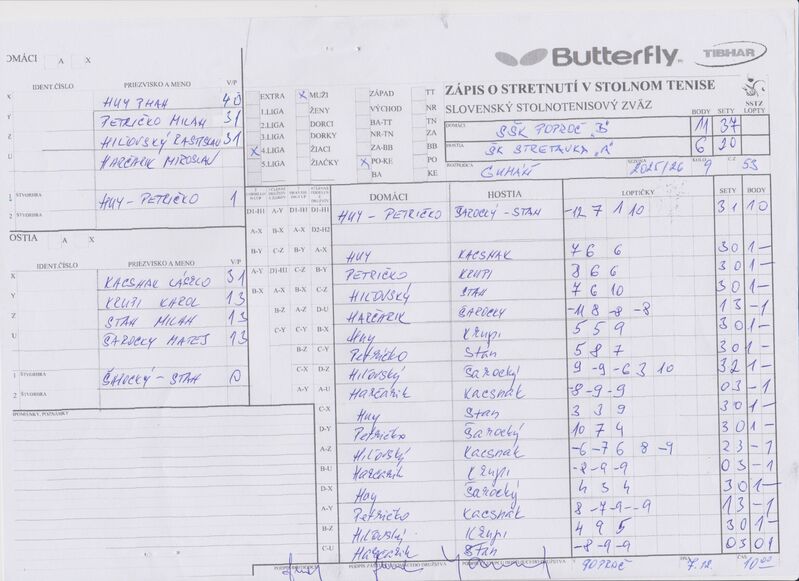 Butterfly TIBHAR
ZÁPIS O STRETNUTÍ V STOLNOM TENISE
SLOVENSKÝ STOLNOTENISOVÝ ZVÄZ
BODY SETY SSTZ LOPTY
DOMÁCI ŠŠK POPROČ "B" 11 37
HOSTIA ŠK STRETAVKA "A" 6 20
SEZÓNA 2025/26 KOLO 9 Č.Z. 53
EXTRA X MUŽI ZÁPAD TT
1.LIGA ŽENY VÝCHOD NR
2.LIGA DORCI BA-TT TN
3.LIGA DORKY NR-TN ZA
X 4.LIGA ŽIACI ZA-BB BB
5.LIGA ŽIAČKY X PO-KE PO
BA KE
DOMÁCI A X
IDENT.ČÍSLO PRIEZVISKO A MENO V/P
HUY PHAN 40
PETRIČKO MILAN 31
HILOVSKÝ RASTISLAV 31
HARČARIK MIROSLAV
1 ŠTVORHRA HUY - PETRIČKO 1
2 ŠTVORHRA
HOSTIA A X
IDENT.ČÍSLO PRIEZVISKO A MENO V/P
X KACSNAK LÁSZLO 31
Y KRUPI KAROL 13
Z STAN MILAN 13
U ŠAROCKY MATEJ 13
1 ŠTVORHRA ŠAROCKÝ - STAN 0
2 ŠTVORHRA
PRIPOMIENKY, POZNÁMKY
DOMÁCI HOSTIA LOPTIČKY SETY BODY
HUY - PETRIČKO ŠAROCKÝ - STAN -12 7 1 10 3 1 1 0
HUY KACSNAK 7 6 6 3 0 1 -
PETRIČKO KRUPI 8 6 6 3 0 1 -
HILOVSKÝ STAN 7 6 10 3 0 1 -
HARČARIK ŠAROCKY -11 8 -8 -8 1 3 - 1
Huy Krupi 5 5 9 3 0 1 -
Petričko Stan 5 8 7 3 0 1 -
Hilovský Šarocký 9 -9 -6 3 10 3 2 1 -
Harčarik Kacsnak -8 -9 -9 0 3 - 1
Huy Stan 3 3 9 3 0 1 -
Petričko Šarocký 10 7 4 3 0 1 -
Hilovský Kacsnák -6 -7 6 8 -9 2 3 - 1
Harčarik Krupi -8 -9 -9 0 3 - 1
Huy Šarocký 4 3 4 3 0 1 -
Petričko Kacsnák 8 -7 -9 -9 1 3 - 1
Hilovský Krupi 4 9 5 3 0 1 -
Harčarik Stan -8 -9 -9 0 3 0 1
V POPROČ DŇA 7.12. ČAS 10 00